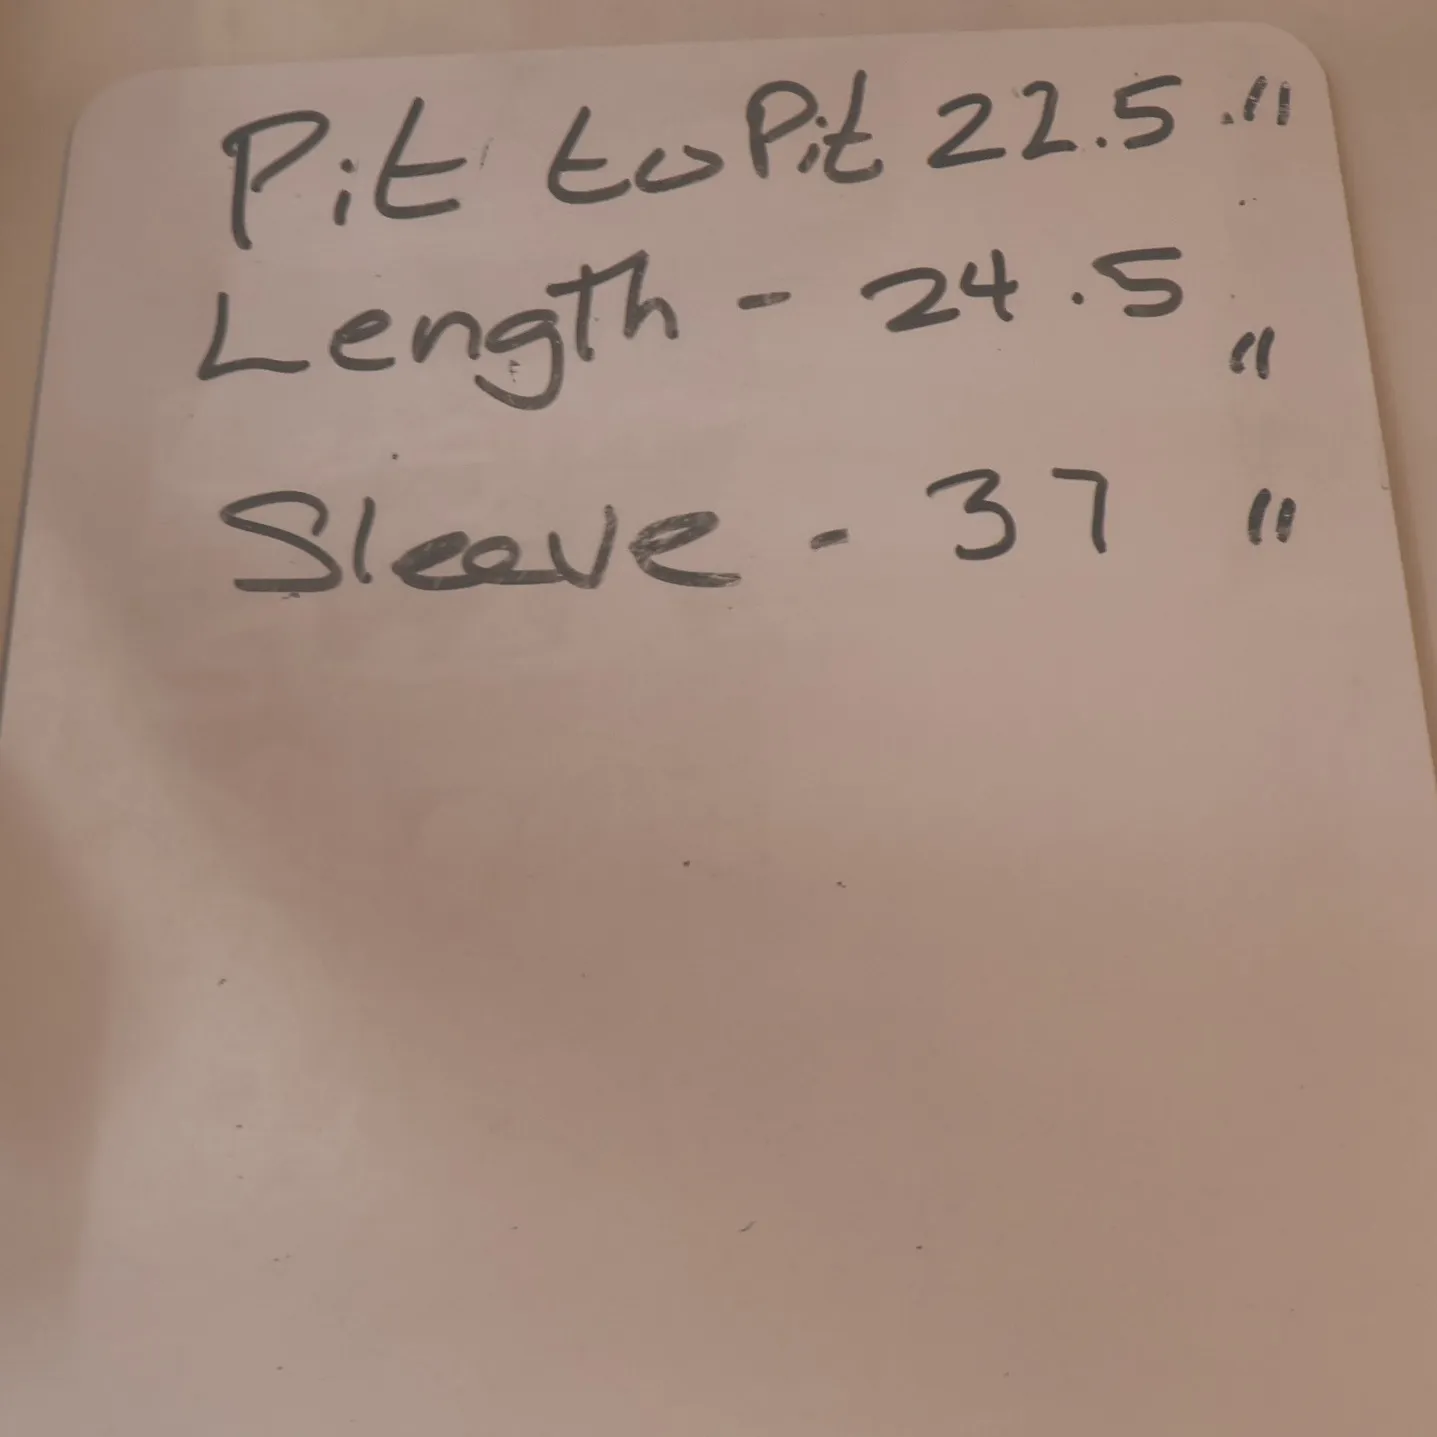 Pit to Pit 22.5"
Length - 24.5"
Sleeve - 37"